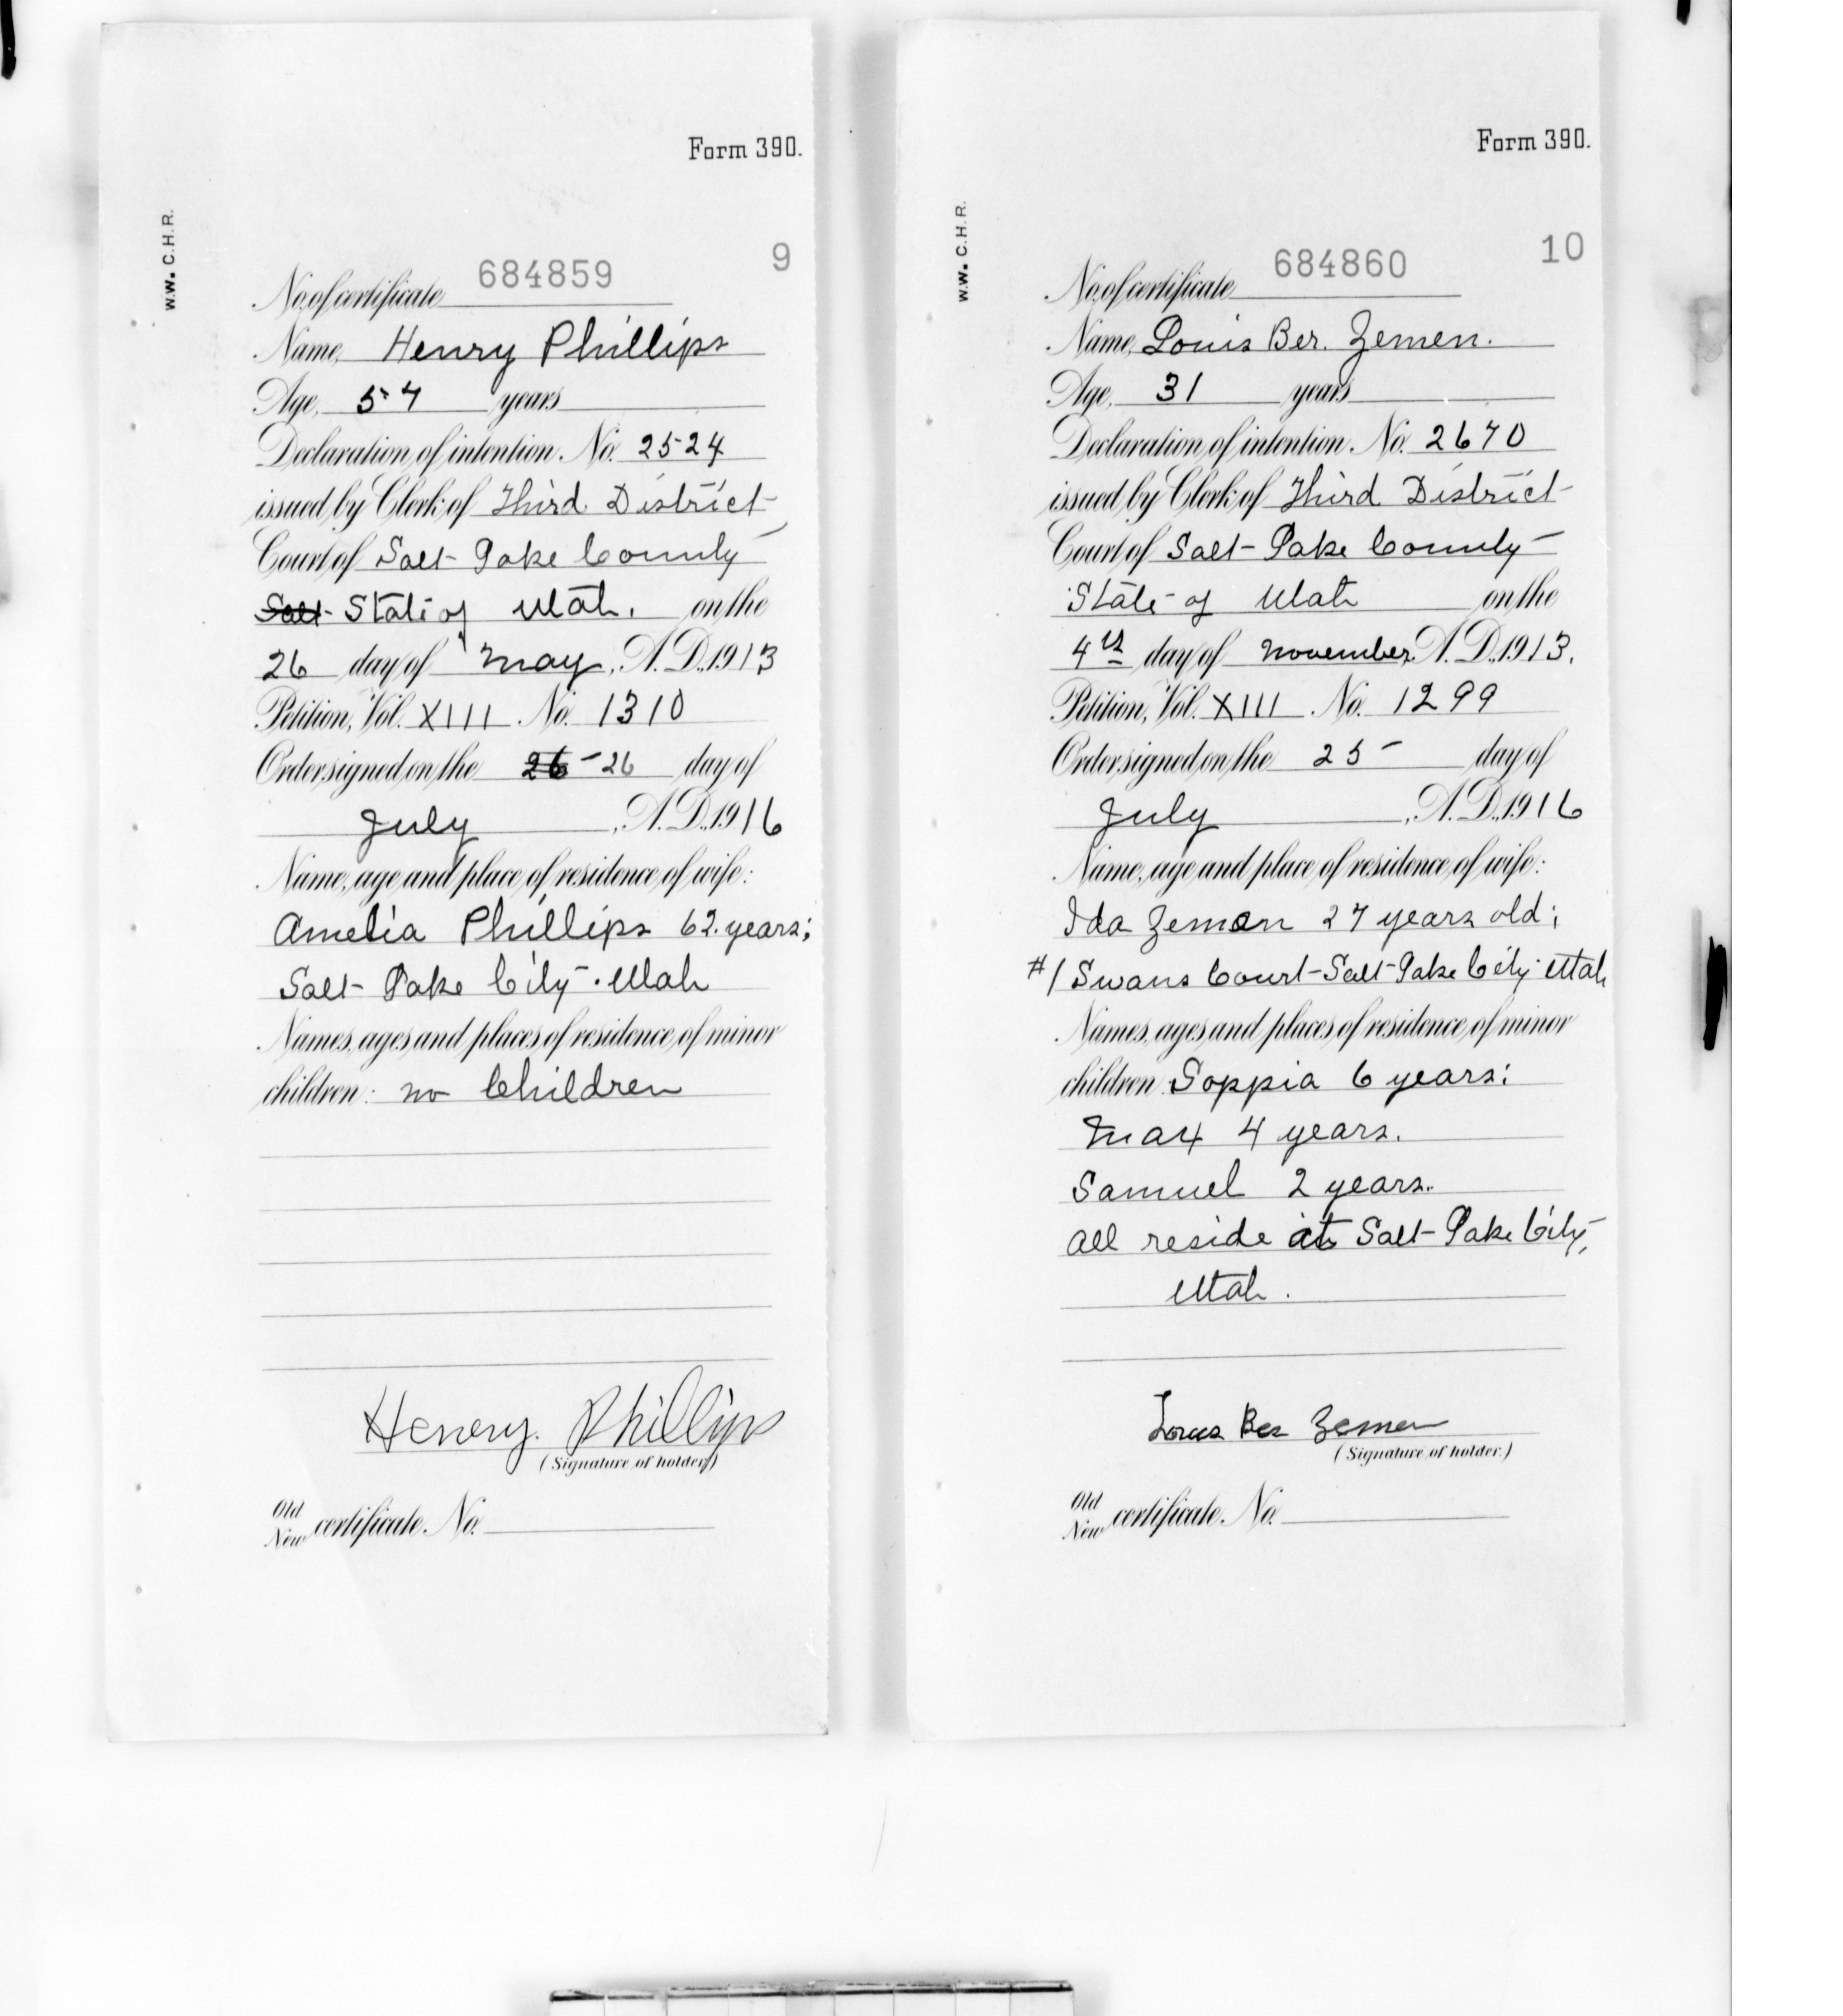 Form 390.
W.W. C.H.R.
9
No. of certificate 684859
Name, Henry Phillips
Age, 57 years
Declaration of intention. No. 2524
issued by Clerk of Third District
Court of Salt Lake County
Salt State of Utah. on the
26 day of May, A.D. 1913
Petition, Vol. XIII No. 1310
Order signed on the 26 - 26 day of
July, A.D. 1916
Name, age and place of residence of wife:
Amelia Phillips 62. years;
Salt Lake City. Utah
Names, ages and places of residence of minor
children: no Children
Henery. Phillips
(Signature of holder.)
Old
New certificate No.
Form 390.
W.W. C.H.R.
10
No. of certificate 684860
Name, Louis Ber. Zemen.
Age, 31 years
Declaration of intention. No. 2670
issued by Clerk of Third District
Court of Salt Lake County
State of Utah on the
4th day of November A.D. 1913.
Petition, Vol. XIII No. 1299
Order signed on the 25 day of
July, A.D. 1916
Name, age and place of residence of wife:
Ida Zemen 27 years old;
#1 Swans Court-Salt Lake City Utah
Names, ages and places of residence of minor
children: Soppia 6 years;
Max 4 years.
Samuel 2 years.
all reside at Salt Lake City,
Utah.
Louis Ber Zemen
(Signature of holder.)
Old
New certificate No.